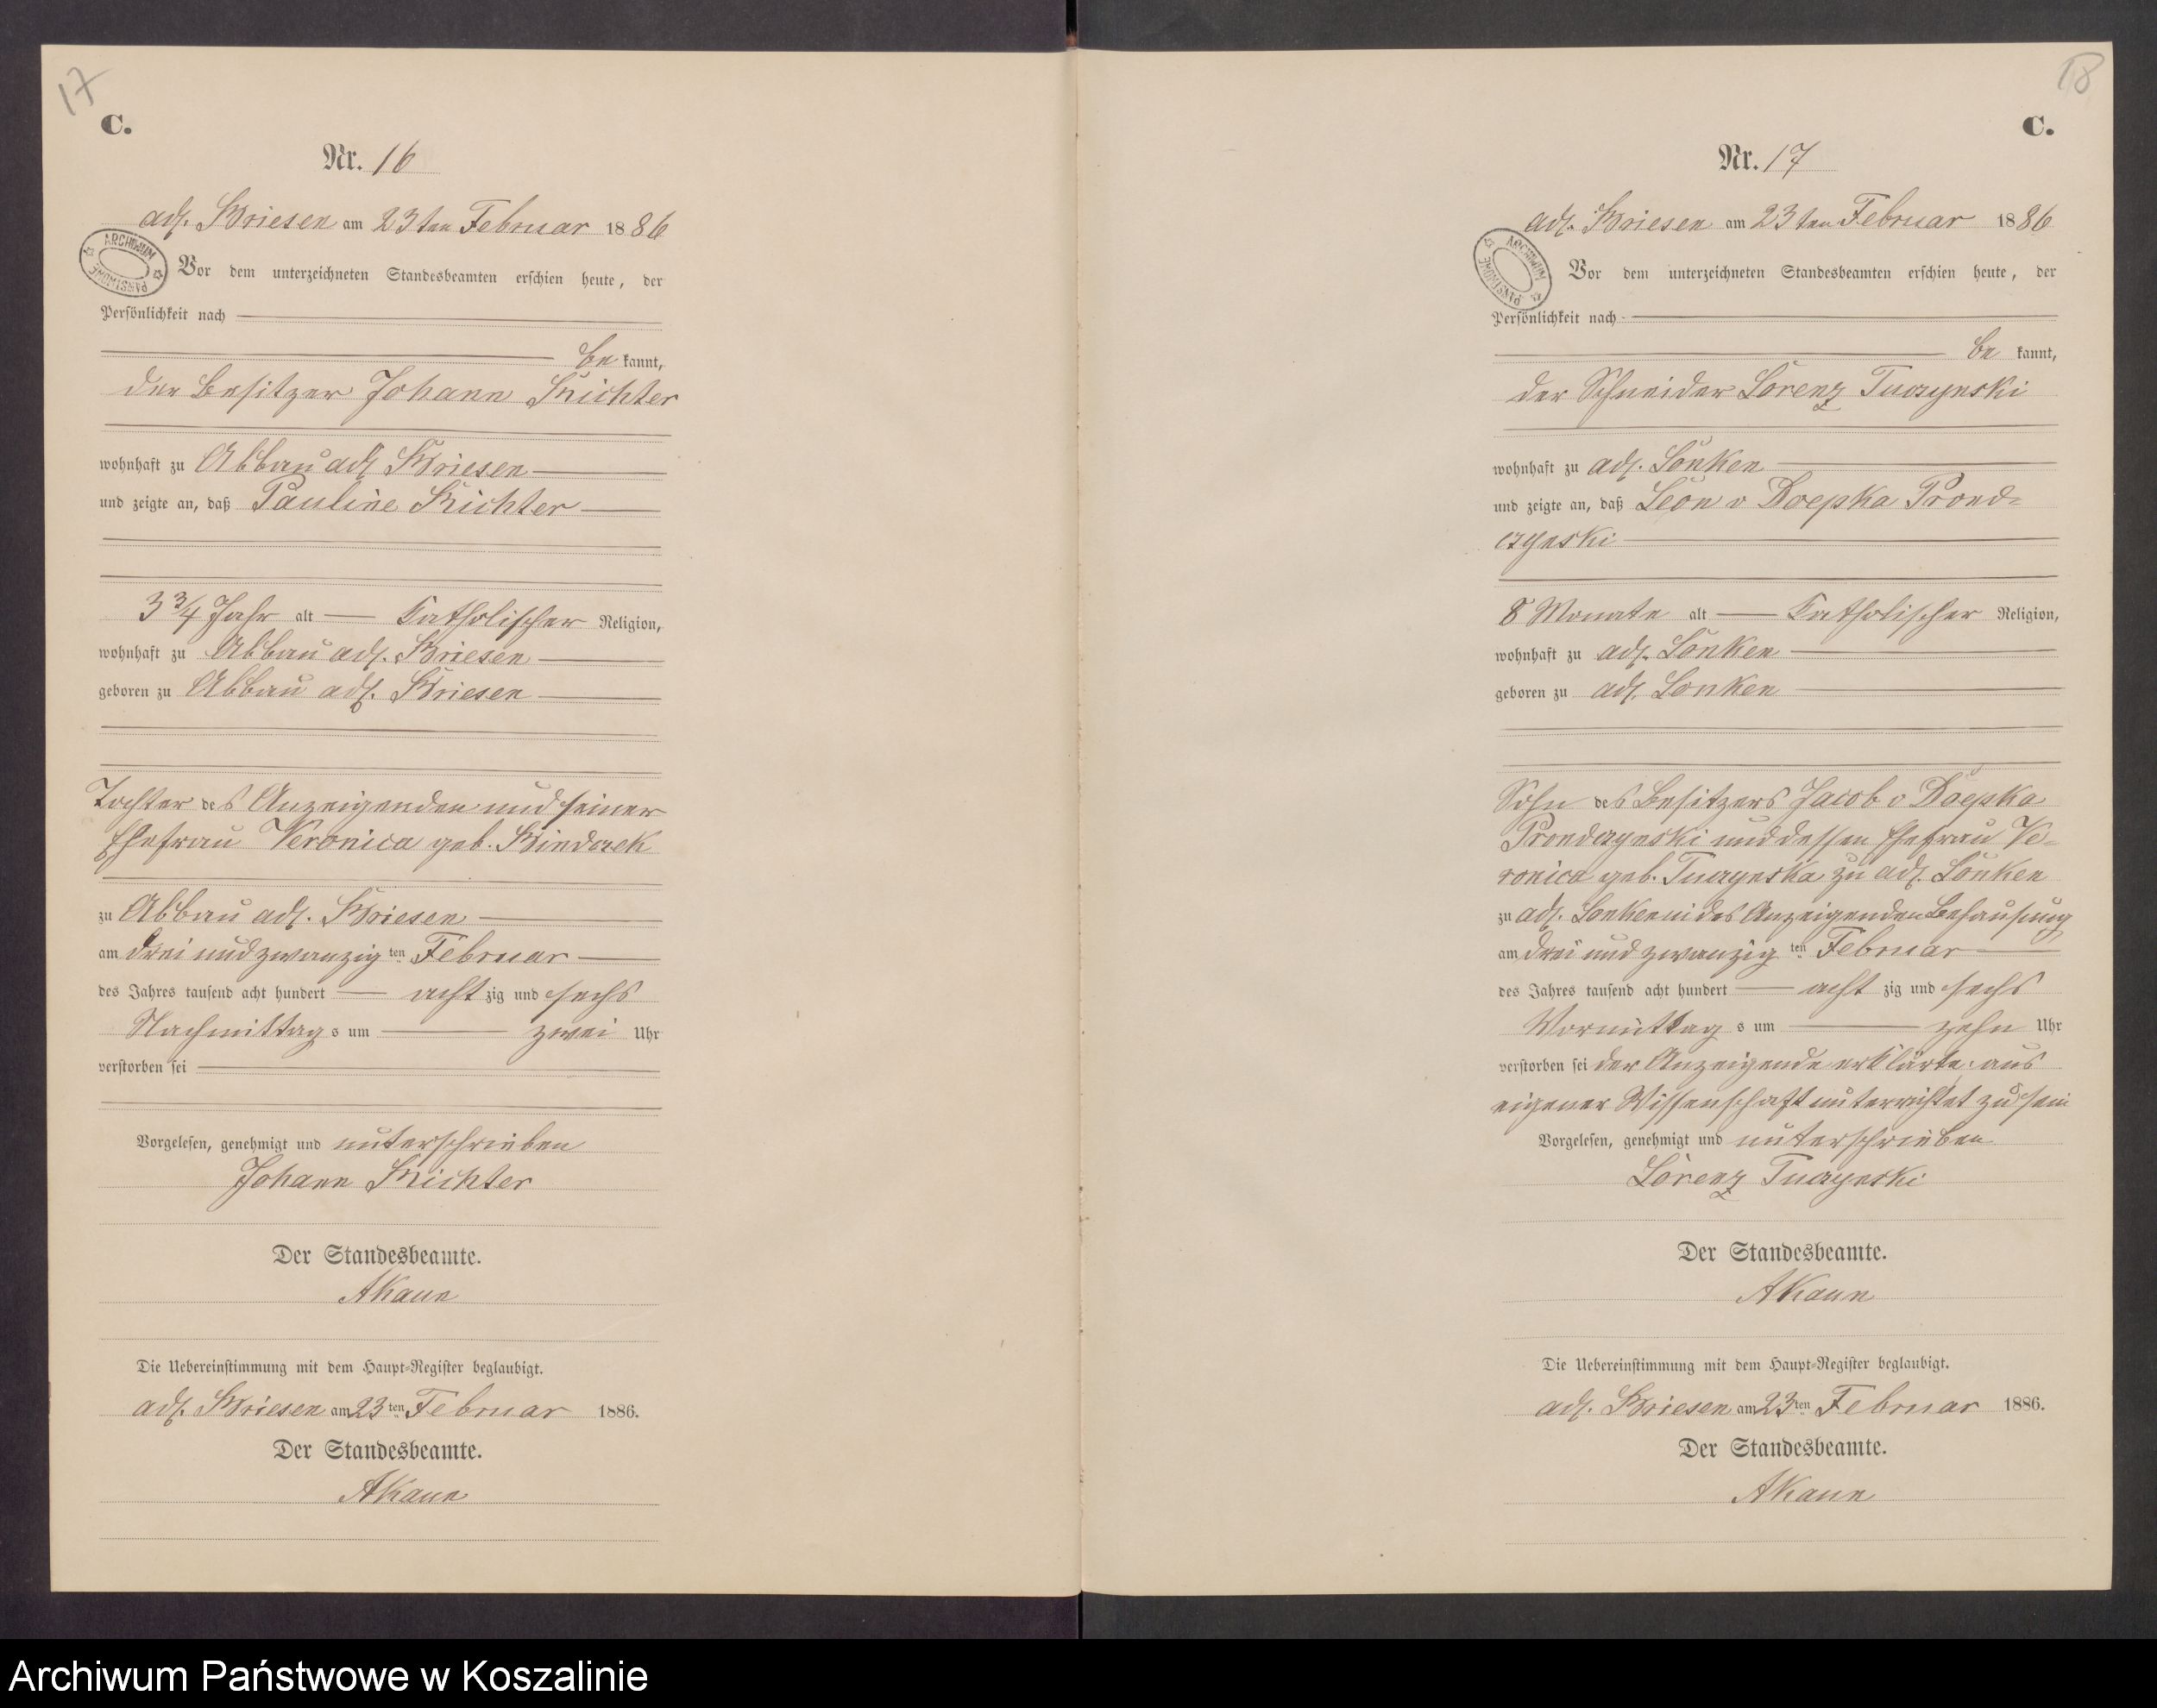 17
C.
Nr. 16
adl. Briesen am 23ten Februar 1886
ARCHIWUM PAŃSTWOWE
Vor dem unterzeichneten Standesbeamten erschien heute, der
Persönlichkeit nach
be kannt,
der Besitzer Johann Richter
wohnhaft zu Abbau adl Briesen
und zeigte an, daß Pauline Richter
3 3/4 Jahr alt katholischer Religion,
wohnhaft zu Abbau adl. Briesen
geboren zu Abbau adl. Briesen
Tochter des Anzeigenden und seiner
Ehefrau Veronica geb.
zu Abbau adl. Briesen
am drei und zwanzig ten Februar
des Jahres tausend acht hundert acht zig und sechs
Nachmittag s um zwei Uhr
verstorben sei
Vorgelesen, genehmigt und unterschrieben
Johann Richter
Der Standesbeamte.
AKaun
Die Uebereinstimmung mit dem Haupt-Register beglaubigt.
adl. Briesen am 23 ten Februar 1886.
Der Standesbeamte.
AKaun
18
C.
Nr. 17
adl. Briesen am 23ten Februar 1886
ARCHIWUM PAŃSTWOWE
Vor dem unterzeichneten Standesbeamten erschien heute, der
Persönlichkeit nach
be kannt,
der Schneider Lorenz Tuczynski
wohnhaft zu adl. Lonken
und zeigte an, daß Leon v Doepka Prond-
czynski
8 Monate alt katholischer Religion,
wohnhaft zu adl. Lonken
geboren zu adl. Lonken
Sohn des Besitzers Jacob v Doepka
Prondczynski und dessen Ehefrau Ve-
ronica geb. Tuczynska zu adl. Lonken
zu adl. Lonken in des Anzeigenden Behausung
am drei und zwanzig ten Februar
des Jahres tausend acht hundert acht zig und sechs
Vormittag s um zehn Uhr
verstorben sei der Anzeigende erklärte, aus
eigener Wissenschaft unterrichtet zu sein
Vorgelesen, genehmigt und unterschrieben
Lorenz Tuczynski
Der Standesbeamte.
AKaun
Die Uebereinstimmung mit dem Haupt-Register beglaubigt.
adl. Briesen am 23 ten Februar 1886.
Der Standesbeamte.
AKaun
Archiwum Państwowe w Koszalinie